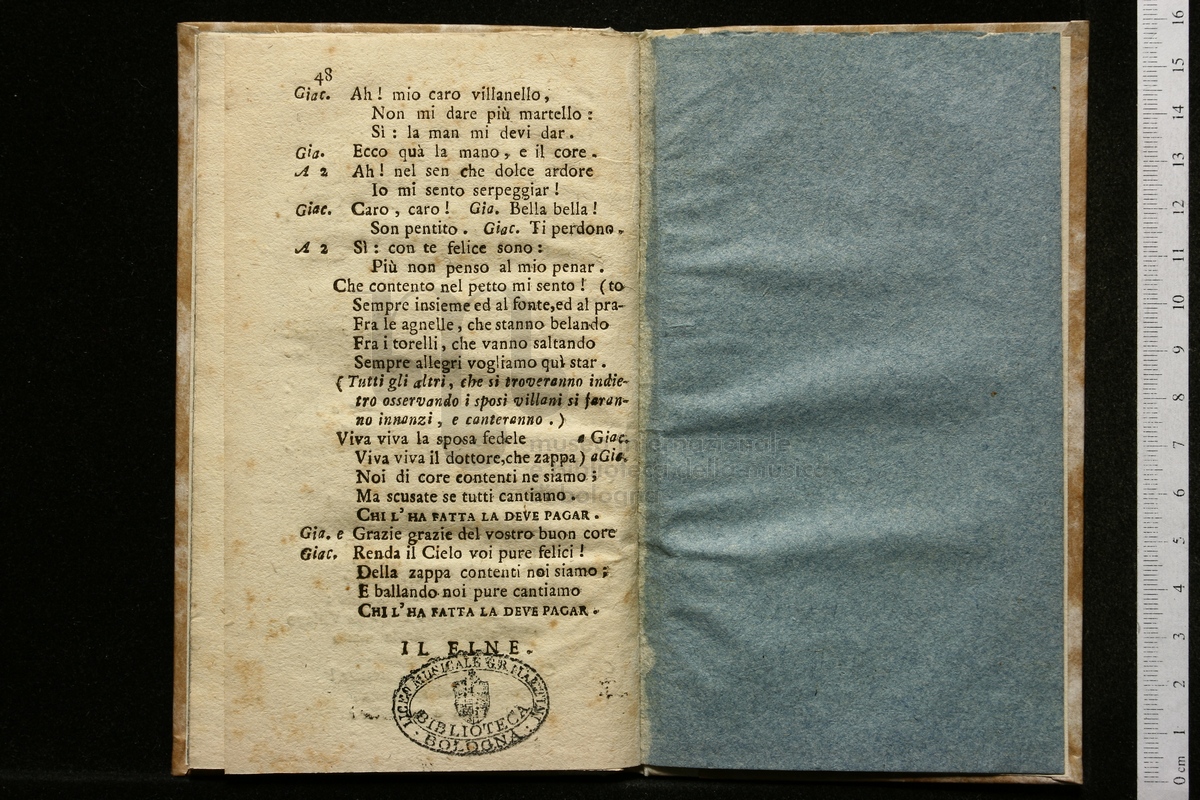 48
Giac. Ah! mio caro villanello,
Non mi dare più martello:
Sì: la man mi devi dar.
Gia. Ecco quà la mano, e il core.
A 2 Ah! nel sen che dolce ardore
Io mi sento serpeggiar!
Giac. Caro, caro! Gia. Bella bella!
Son pentito. Giac. Ti perdono.
A 2 Sì: con te felice sono:
Più non penso al mio penar.
Che contento nel petto mi sento! (to
Sempre insieme ed al fonte,ed al pra-
Fra le agnelle, che stanno belando
Fra i torelli, che vanno saltando
Sempre allegri vogliamo quì star.
(Tutti gli altri, che si troveranno indie-
tro osservando i sposi villani si faran-
no innanzi, e canteranno.)
Viva viva la sposa fedele a Giac.
Viva viva il dottore,che zappa) a Gia.
Noi di core contenti ne siamo;
Ma scusate se tutti cantiamo.
CHI L'HA FATTA LA DEVE PAGAR.
Gia. e Grazie grazie del vostro buon core
Giac. Renda il Cielo voi pure felici!
Della zappa contenti noi siamo;
E ballando noi pure cantiamo
CHI L'HA FATTA LA DEVE PAGAR.
IL FINE.
LICEO MUSICALE G.B. MARTINI
BIBLIOTECA
BOLOGNA
museo internazionale
e biblioteca della musica
di bologna
0 cm 1 2 3 4 5 6 7 8 9 10 11 12 13 14 15 16